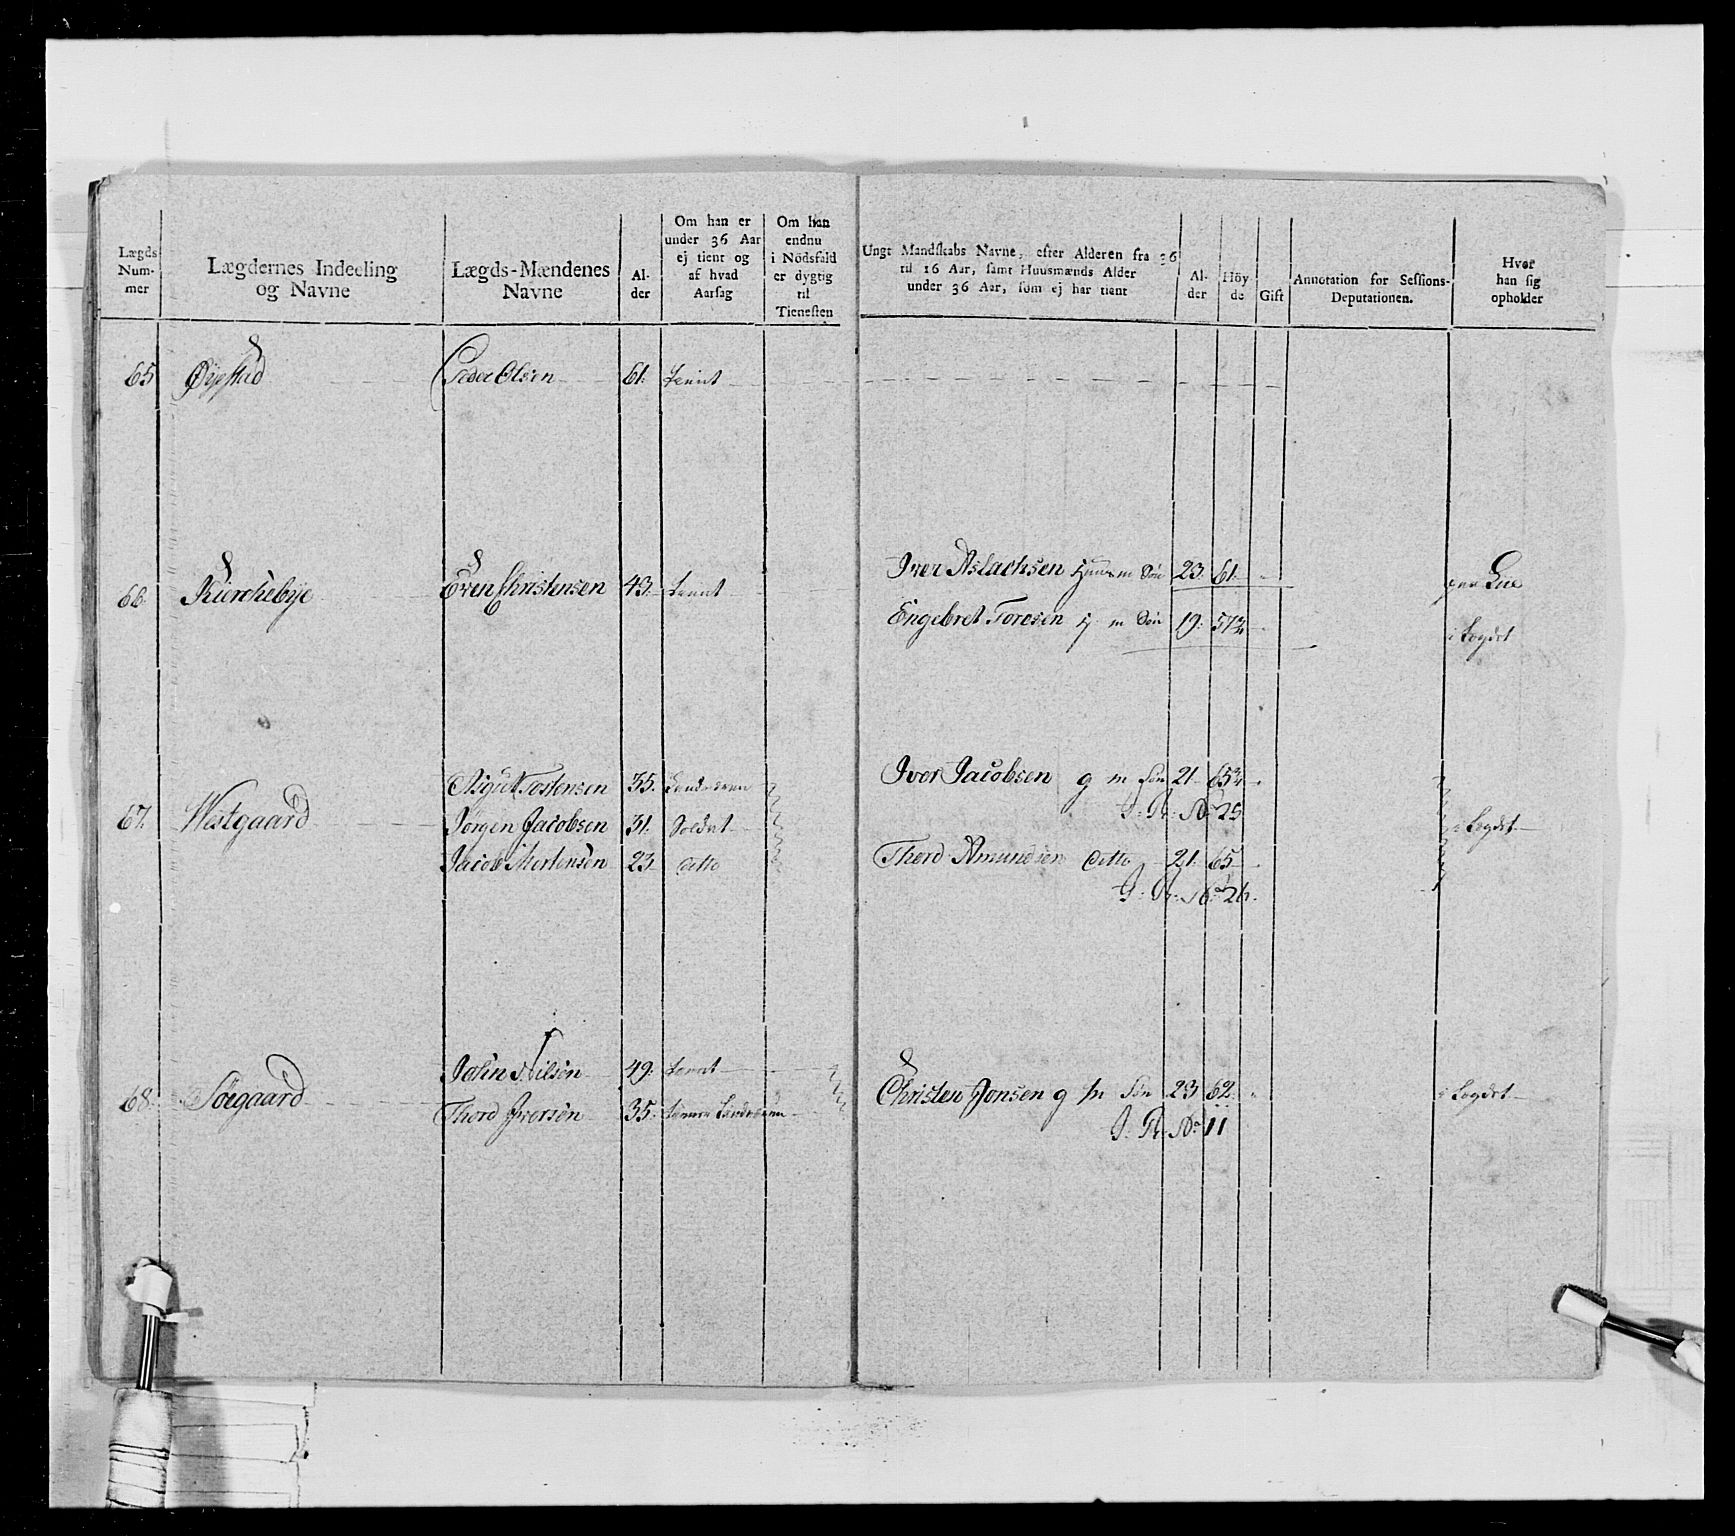 Lægds Num-mer
Lægdernes Indeeling og Navne
Lægds-Mændenes Navne
Al-der
Om han er under 36 Aar ej tient og af hvad Aarsag
Om han endnu i Nödsfald er dygtig til Tienesten
Ungt Mandskabs Navne, efter Alderen fra 36 til 16 Aar, samt Huusmænds Alder under 36 Aar, som ej har tient
Al-der
Höy-de
Gift
Annotation for Sessions-Deputationen.
Hvor han sig opholder
65 Øyestad Peder Olsen 61. tient
66. Kirchebye Even Christensen 43. tient
Iver Aslachsen Huusm Søn 23. 61.
Engebret Toresen H m Søn 19. 57¾ i Legdet
67. Westgaard
Tostensen 35. Landevern
Jørgen Jacobsen 31. Soldat
Jacob Mortensen 23. ditto
Iver Jacobsen g m Søn 21. 65¾
No 25
i Legdet
Thord Amundsen ditto 21. 65
No 26.
68. Søegaard John Nilsen 49. tient
Thord Iversen 35.
Christen Jonsen g m Søn 23 62. i Legdet
No 11